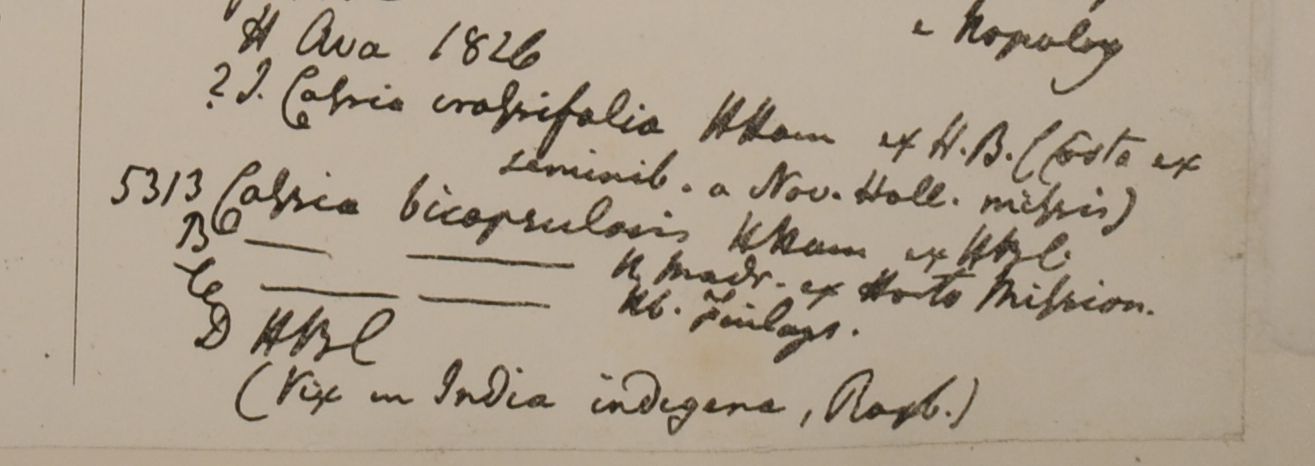 e Nopalry
H Ava 1826
? J. Cassia crassifolia HHam ex H.B. (Costa ex
seminib. a Nov. Holl. missis)
5313 Cassia bicapsularis HHam ex HBC
B — — H. Madr. ex Horto Mission.
C — — Hb. Finlays.
D HBC
(Vix in India indigena, Roxb.)